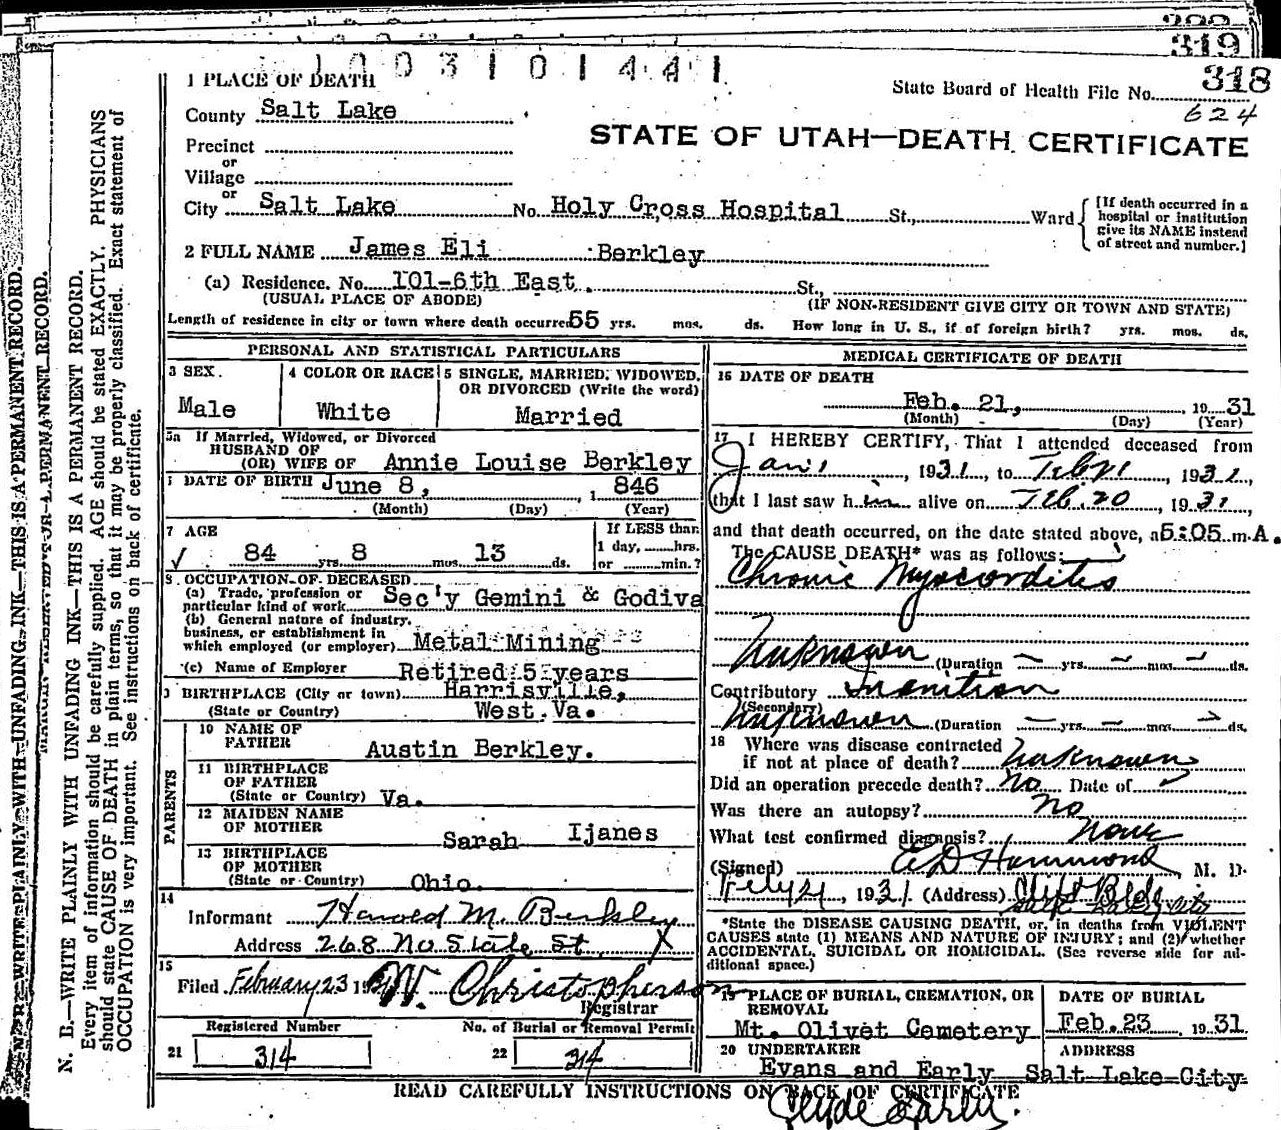 319
1003101441
318
1 PLACE OF DEATH
State Board of Health File No.
624
County Salt Lake
STATE OF UTAH—DEATH CERTIFICATE
Precinct
or
Village
or
City Salt Lake No. Holy Cross Hospital St., Ward
[If death occurred in a hospital or institution give its NAME instead of street and number.]
2 FULL NAME James Eli Berkley
(a) Residence. No. 101-6th East. St.,
(USUAL PLACE OF ABODE) (IF NON-RESIDENT GIVE CITY OR TOWN AND STATE)
Length of residence in city or town where death occurred 55 yrs. mos. ds. How long in U. S., if of foreign birth? yrs. mos. ds.
PERSONAL AND STATISTICAL PARTICULARS
3 SEX.
Male
4 COLOR OR RACE
White
5 SINGLE, MARRIED, WIDOWED,
OR DIVORCED (Write the word)
Married
5a If Married, Widowed, or Divorced
HUSBAND OF
(OR) WIFE OF Annie Louise Berkley
DATE OF BIRTH June 8, 1 846
(Month) (Day) (Year)
7 AGE
84 yrs. 8 mos. 13 ds.
If LESS than
1 day, hrs.
or min.?
8 OCCUPATION OF DECEASED
(a) Trade, profession or
particular kind of work Sec'y Gemini & Godiva
(b) General nature of industry,
business, or establishment in
which employed (or employer) Metal Mining
(c) Name of Employer Retired 5 years
BIRTHPLACE (City or town) Harrisville,
(State or Country) West.Va.
PARENTS
10 NAME OF
FATHER Austin Berkley.
11 BIRTHPLACE
OF FATHER
(State or Country) Va.
12 MAIDEN NAME
OF MOTHER Sarah Ijanes
13 BIRTHPLACE
OF MOTHER
(State or Country) Ohio.
14
Informant Harold M. Berkley
Address 268 No State St X
15
Filed February 23 19 W. Christopherson
Registrar
Registered Number
21 314
No. of Burial or Removal Permit
22 314
MEDICAL CERTIFICATE OF DEATH
16 DATE OF DEATH
Feb. 21, 19 31
(Month) (Day) (Year)
17 I HEREBY CERTIFY, That I attended deceased from
Jan 1, 1931, to Feb 21, 1931,
that I last saw him alive on Feb. 20, 1931,
and that death occurred, on the date stated above, a 5:05 m A.
The CAUSE DEATH* was as follows:
Chronic Myocorditis
Unknown (Duration yrs. mos. ds.
Contributory Inanition
(Secondary)
Unknown (Duration yrs. mos. ds.
18 Where was disease contracted
if not at place of death? Unknown
Did an operation precede death? No Date of
Was there an autopsy? No
What test confirmed diagnosis? None
(Signed) Hammond, M. D.
Feby 21, 1931 (Address) Clift Bldg
Salt Lake City
*State the DISEASE CAUSING DEATH, or, in deaths from VIOLENT
CAUSES state (1) MEANS AND NATURE OF INJURY; and (2) whether
ACCIDENTAL, SUICIDAL OR HOMICIDAL. (See reverse side for ad-
ditional space.)
19 PLACE OF BURIAL, CREMATION, OR
REMOVAL
Mt. Olivet Cemetery
DATE OF BURIAL
Feb.23 19 31
20 UNDERTAKER
Evans and Early
ADDRESS
Salt Lake City
READ CAREFULLY INSTRUCTIONS ON BACK OF CERTIFICATE
Clyde Early.
N. B.—WRITE PLAINLY WITH UNFADING INK—THIS IS A PERMANENT RECORD.
Every item of information should be carefully supplied. AGE should be stated EXACTLY. PHYSICIANS
should state CAUSE OF DEATH in plain terms, so that it may be properly classified. Exact statement of
OCCUPATION is very important. See instructions on back of certificate.